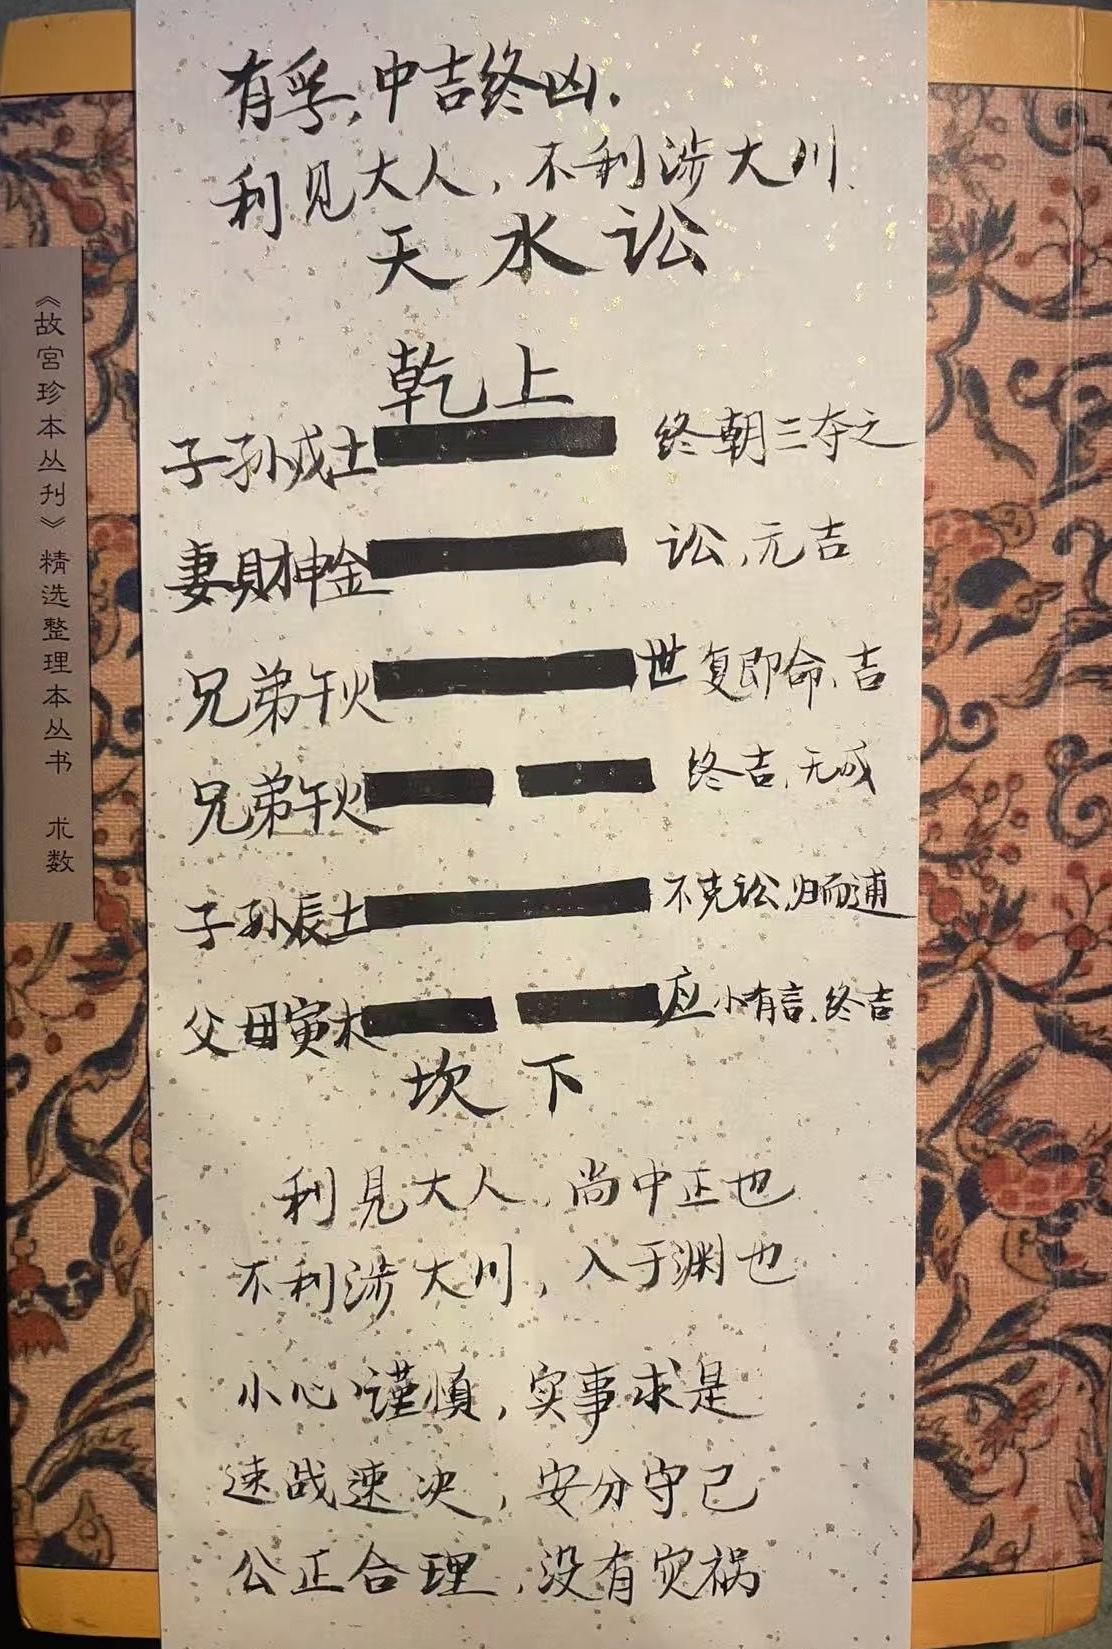 有孚,中吉终凶.
利见大人,不利涉大川.
天水讼
乾上
子孙戌土 终朝三夺之
妻財申金 讼,元吉
兄弟午火 世 复即命、吉
兄弟午火 终吉,无成
子孙辰土 不克讼,归而逋
父母寅木 应 小有言,终吉
坎下
利見大人,尚中正也
不利涉大川,入于渊也
小心谨慎,实事求是
速战速决,安分守己
公正合理,没有灾祸
《故宫珍本丛刊》精选整理本丛书 术数